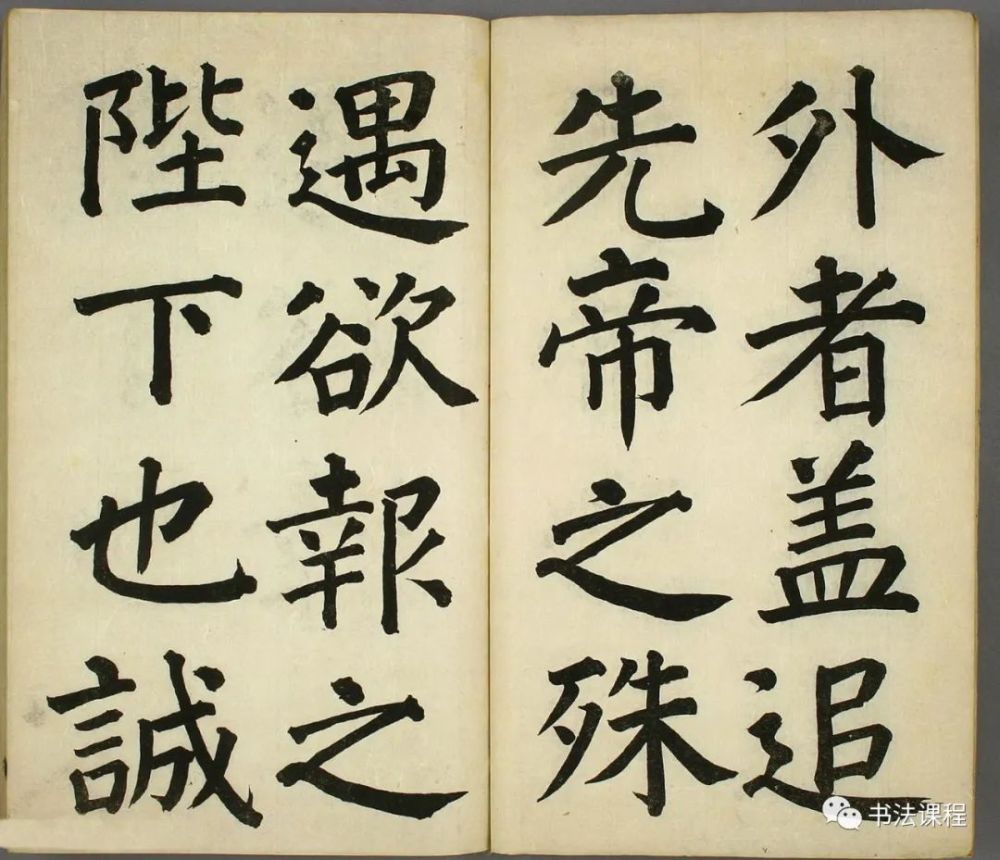 外者盖追
先帝之殊
遇欲報之
陛下也誠
书法课程